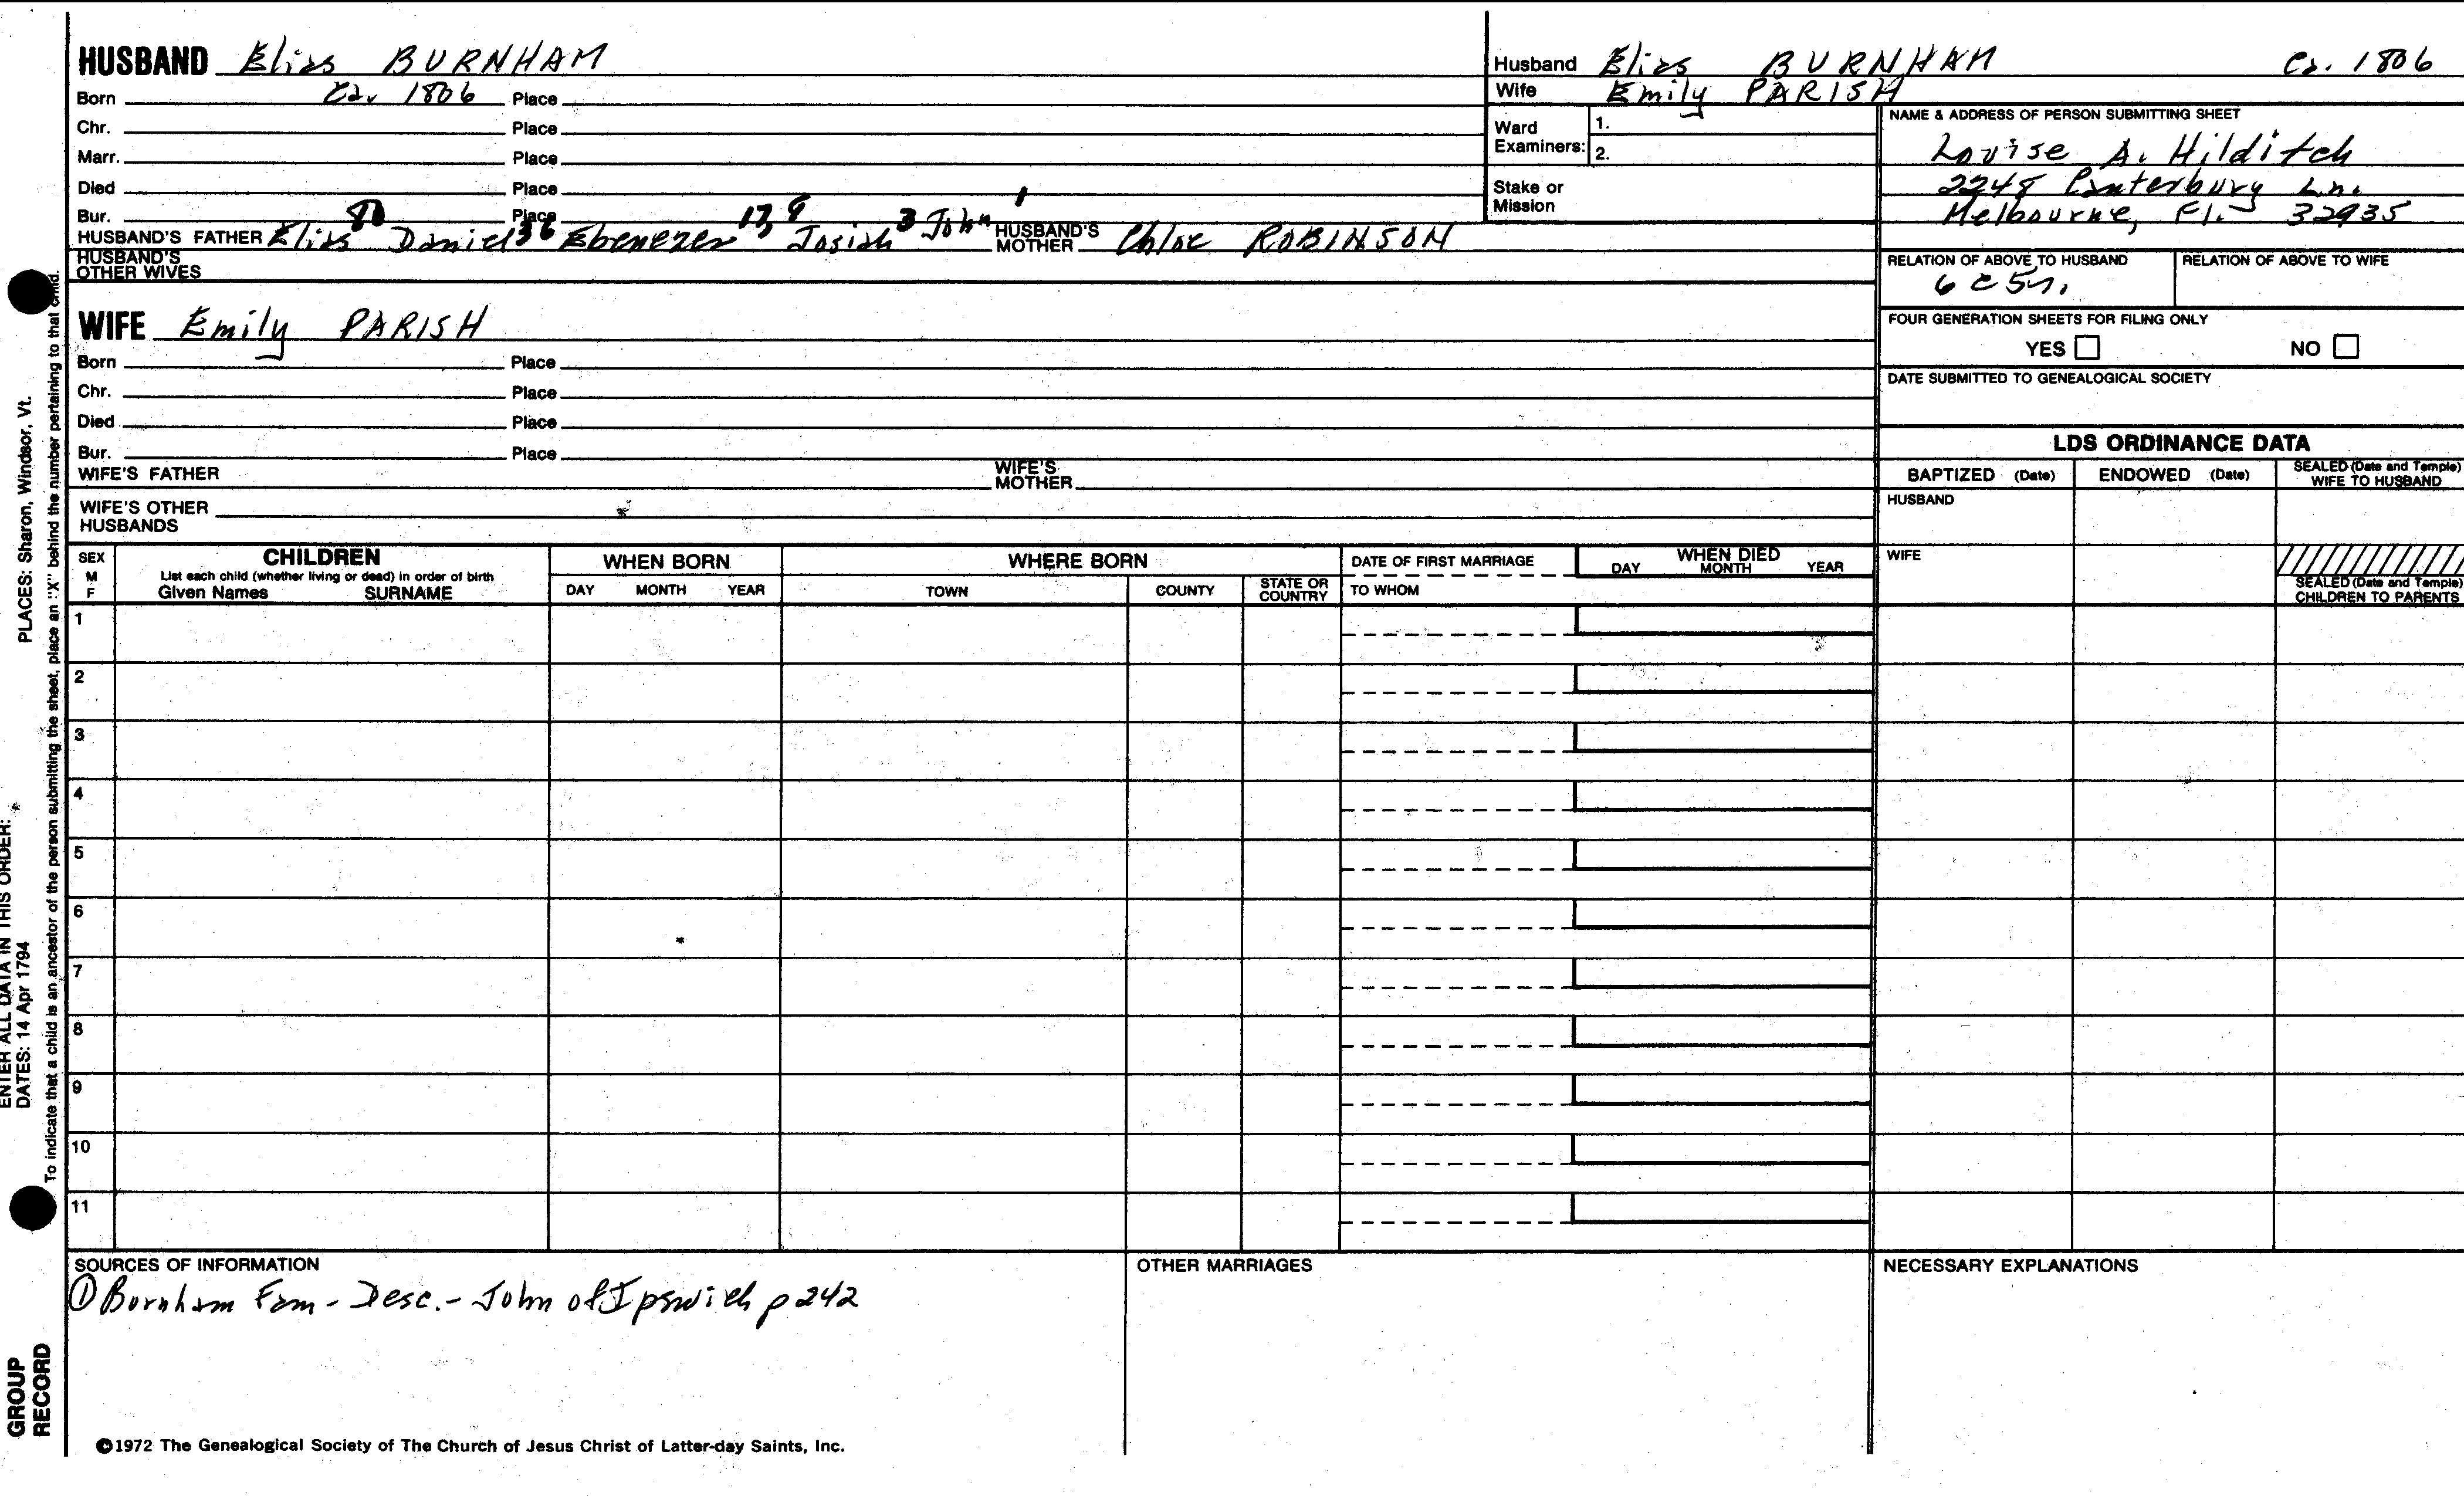 HUSBAND Elias BURNHAM
Born Ca. 1806 Place
Chr. Place
Marr. Place
Died Place
Bur. Place
80 36 13, 9 3 1
HUSBAND'S FATHER Elias Daniel Ebenezer Josiah John HUSBAND'S MOTHER Chloe ROBINSON
HUSBAND'S OTHER WIVES
WIFE Emily PARISH
Born Place
Chr. Place
Died Place
Bur. Place
WIFE'S FATHER WIFE'S MOTHER
WIFE'S OTHER HUSBANDS
Husband Elias BURNHAM Ca. 1806
Wife Emily PARISH
Ward Examiners: 1.
2.
Stake or Mission
NAME & ADDRESS OF PERSON SUBMITTING SHEET
Louise A. Hilditch
2248 Canterbury Ln.
Melbourne, Fl. 32935
RELATION OF ABOVE TO HUSBAND RELATION OF ABOVE TO WIFE
6 c 5 r.
FOUR GENERATION SHEETS FOR FILING ONLY
YES NO
DATE SUBMITTED TO GENEALOGICAL SOCIETY
LDS ORDINANCE DATA
BAPTIZED (Date) ENDOWED (Date) SEALED (Date and Temple) WIFE TO HUSBAND
HUSBAND
WIFE
SEALED (Date and Temple) CHILDREN TO PARENTS
SEX M F
CHILDREN
List each child (whether living or dead) in order of birth
Given Names SURNAME
WHEN BORN
DAY MONTH YEAR
WHERE BORN
TOWN COUNTY STATE OR COUNTRY
DATE OF FIRST MARRIAGE
TO WHOM
WHEN DIED
DAY MONTH YEAR
1
2
3
4
5
6
7
8
9
10
11
SOURCES OF INFORMATION
① Burnham Fam - Desc. - John of Ipswich p 242
OTHER MARRIAGES
NECESSARY EXPLANATIONS
©1972 The Genealogical Society of The Church of Jesus Christ of Latter-day Saints, Inc.
GROUP RECORD
ENTER ALL DATA IN THIS ORDER:
DATES: 14 Apr 1794 PLACES: Sharon, Windsor, Vt.
To indicate that a child is an ancestor of the person submitting the sheet, place an "X" behind the number pertaining to that child.